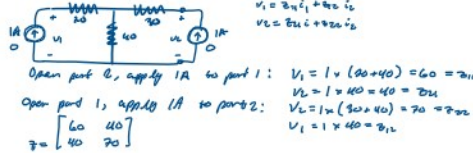 20 30
v₁ = z₁₁i₁ + z₁₂i₂
+ +
1A v₁ 40 v₂ 1A
v₂ = z₂₁i₁ + z₂₂i₂
0 0
- -
Open port 2, apply 1A to port 1: V₁ = 1 × (20+40) = 60 = z₁₁
V₂ = 1 × 40 = 40 = z₂₁
Open port 1, apply 1A to port 2: V₂ = 1 × (30+40) = 70 = z₂₂
V₁ = 1 × 40 = z₁₂
z = [60 40
40 70]